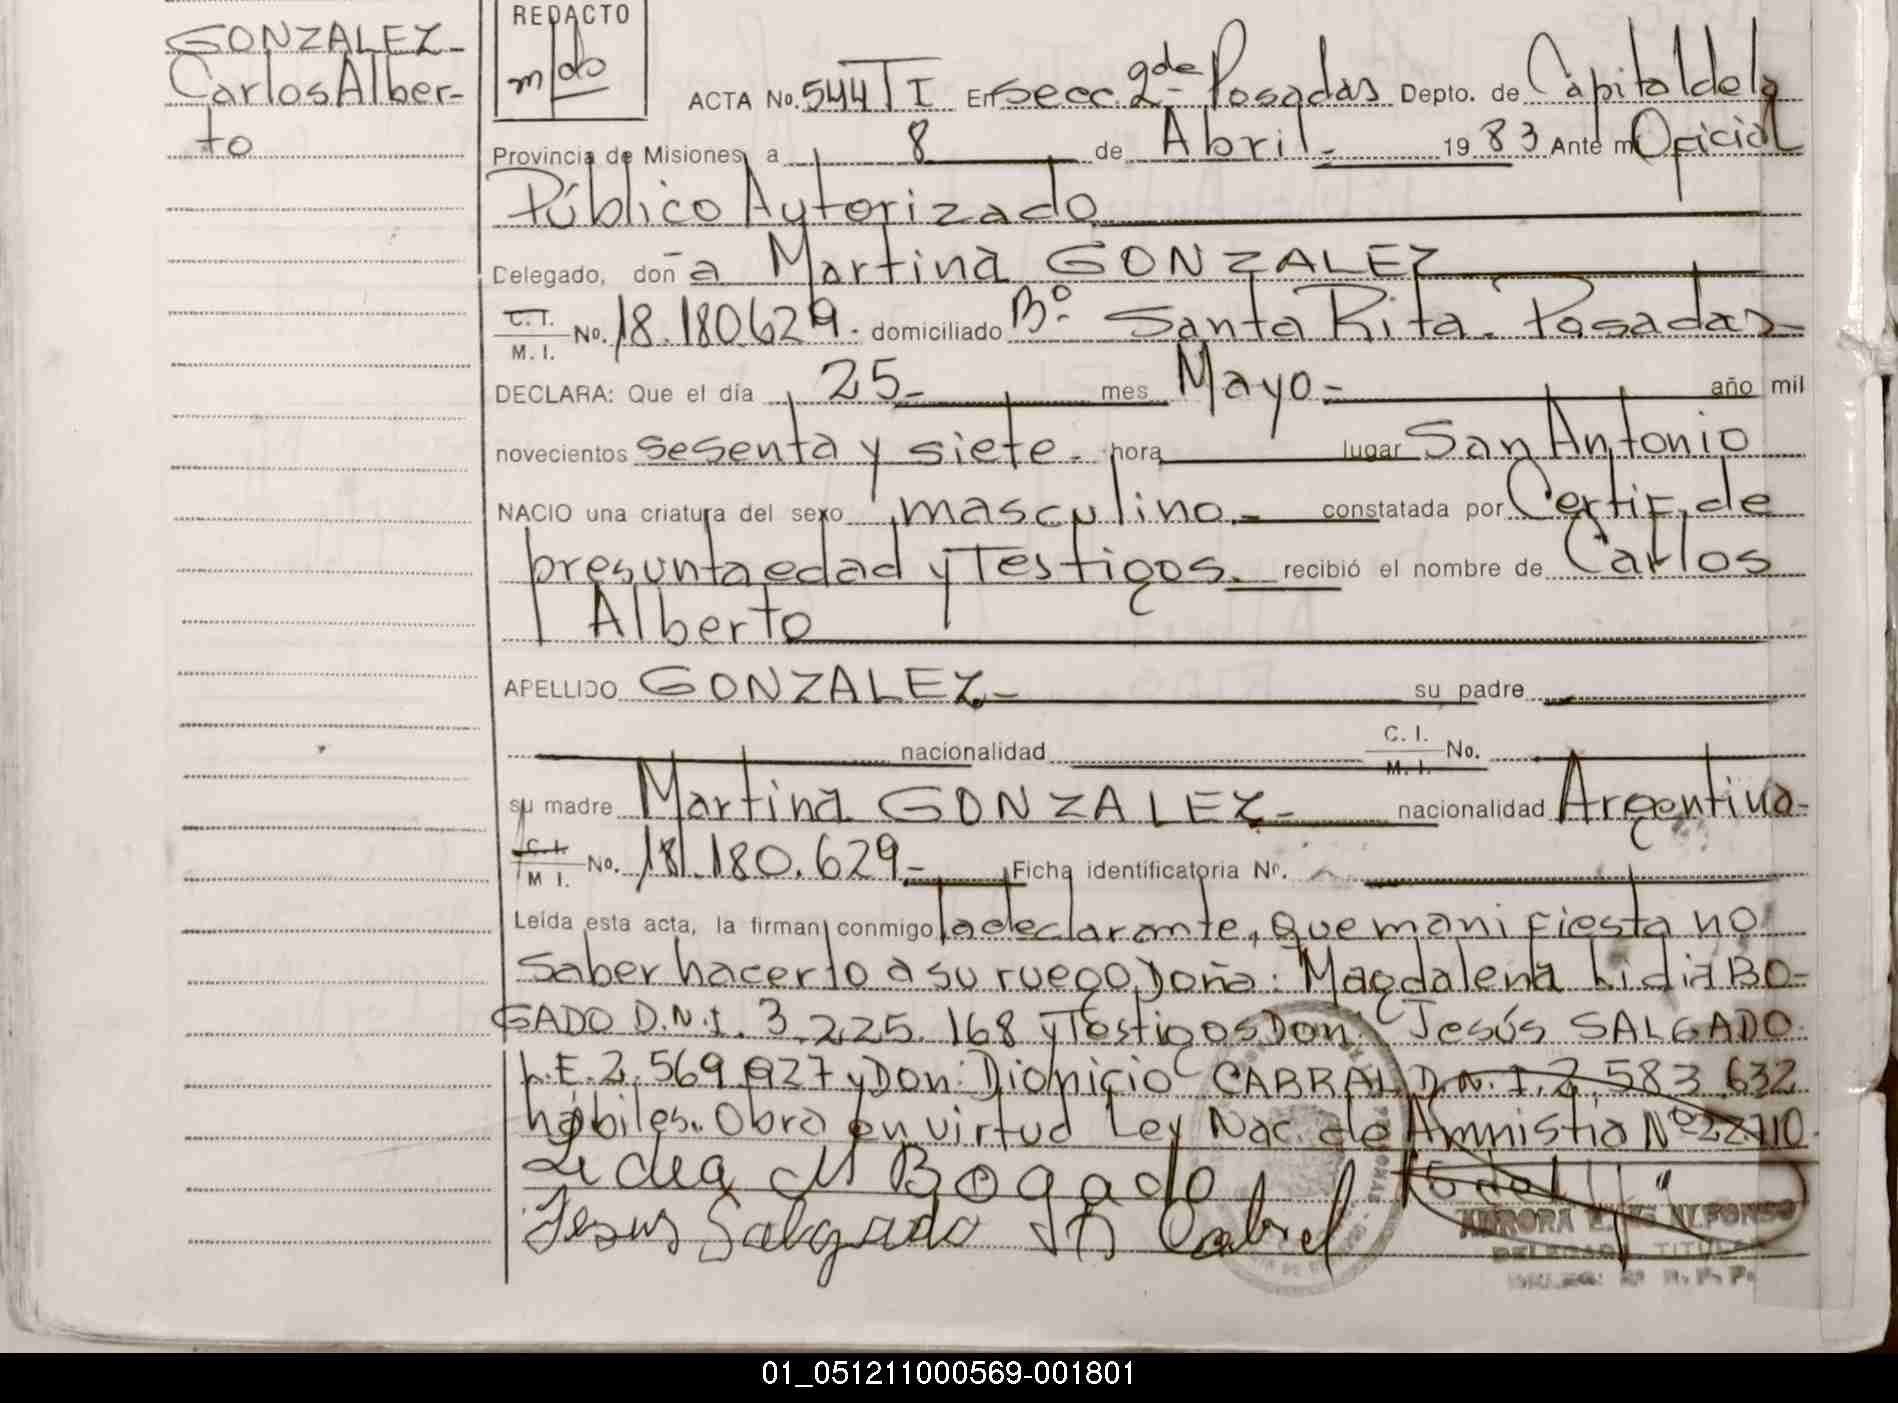 GONZALEZ-
Carlos Alber-
to
REDACTO
ACTA No. 544 T I En Secc. 2da - Posadas Depto. de Capital de la
Provincia de Misiones, a 8 de Abril - 1983 Ante mi Oficial
Público Autorizado
Delegado, doña Martina GONZALEZ
C.I. M. I. No. 18.180.629. domiciliado Bº. Santa Rita - Posadas
DECLARA: Que el día 25- mes Mayo- año mil
novecientos sesenta y siete - hora lugar San Antonio
NACIO una criatura del sexo masculino. constatada por Certif. de
presunta edad y Testigos. recibió el nombre de Carlos
Alberto
APELLIDO GONZALEZ- su padre
nacionalidad C. I. M. I. No.
su madre Martina GONZALEZ- nacionalidad Argentina-
C. I. M I. No. 18.180.629.- Ficha identificatoria Nº.
Leída esta acta, la firman conmigo la declarante, que manifiesta no
saber hacerlo a su ruego Doña: Magdalena Lidia BO-
GADO D.N.I. 3.225.168 y Testigos Don: Jesús SALGADO
L.E. 2.569.927 y Don: Dionicio CABRAL D.N.I. 2.583.632
hábiles. Obra en virtud Ley Nac. de Amnistia Nº 22.710.
Lidia M Bogado
Jesus Salgado Cabral
DELEGADO TITULAR
01_051211000569-001801